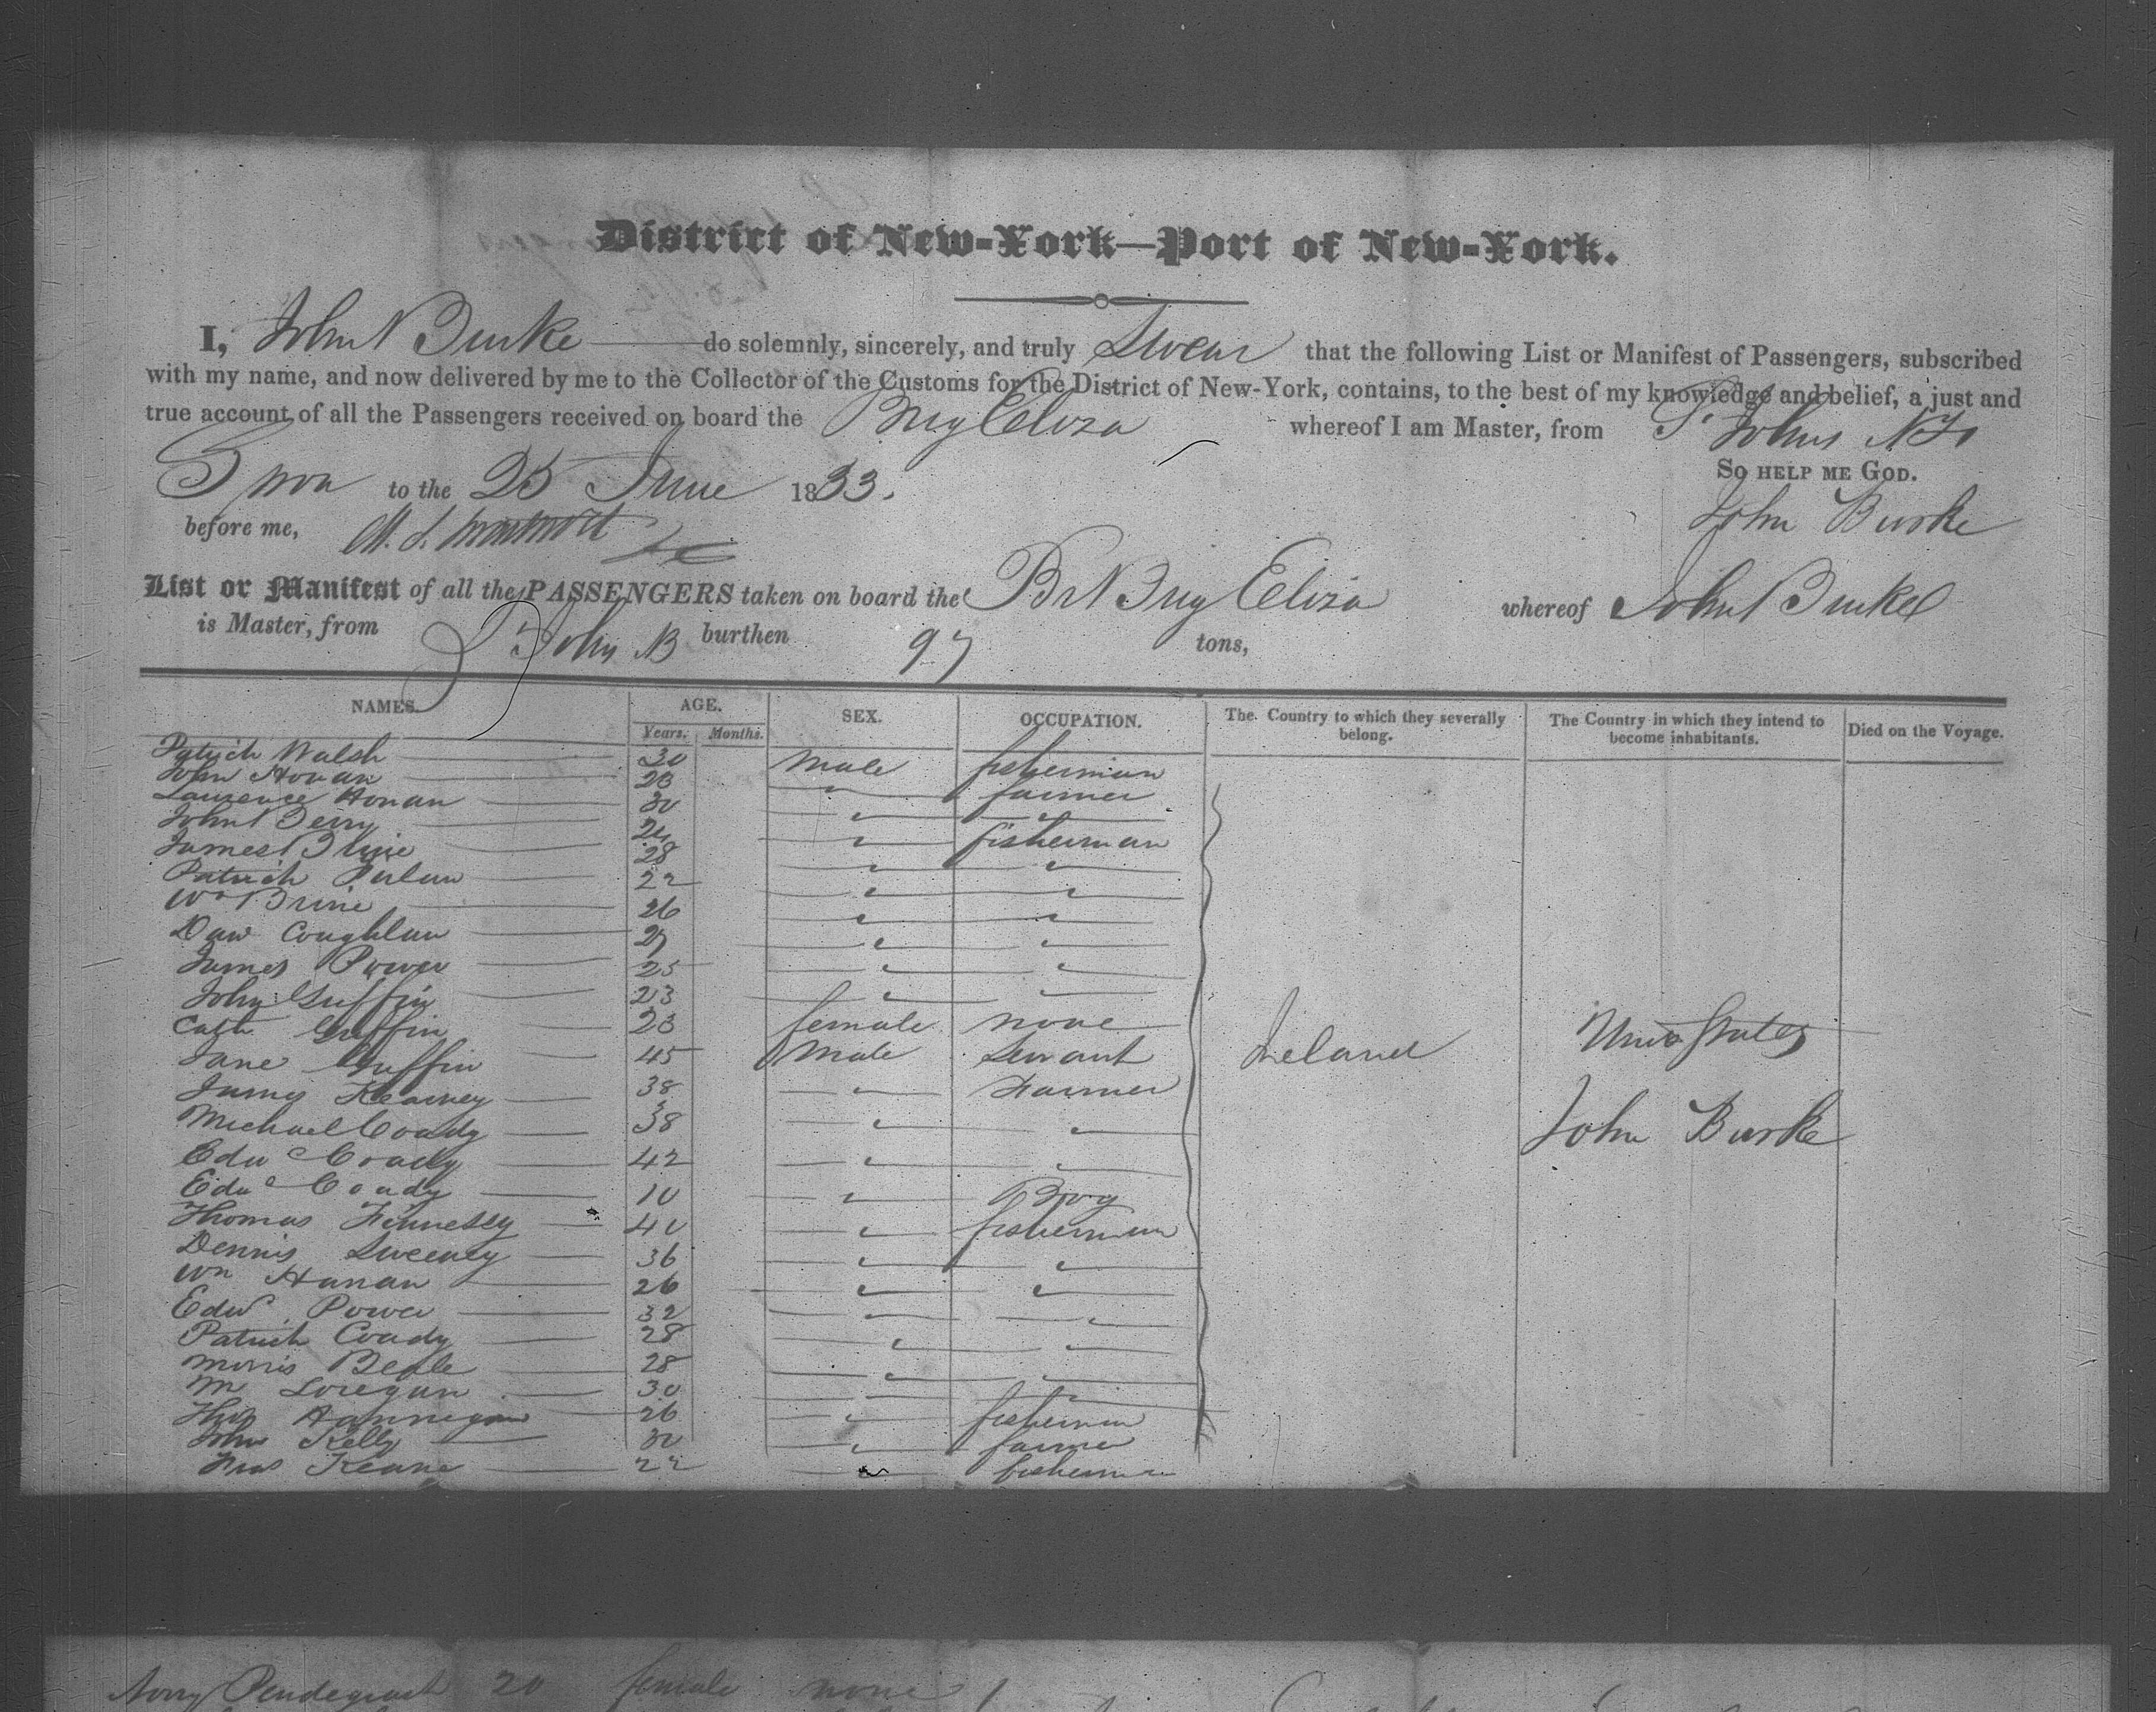 District of New-York—Port of New-York.
I, John Burke do solemnly, sincerely, and truly Swear that the following List or Manifest of Passengers, subscribed
with my name, and now delivered by me to the Collector of the Customs for the District of New-York, contains, to the best of my knowledge and belief, a just and
true account of all the Passengers received on board the Brig Eliza whereof I am Master, from St Johns NF
So help me God.
Swon to the 25 June 1833.
John Burke
before me,
List or Manifest of all the PASSENGERS taken on board the Br Brig Eliza whereof John Burke
is Master, from St John burthen 97 tons,
NAMES. AGE. SEX. OCCUPATION. The Country to which they severally belong. The Country in which they intend to become inhabitants. Died on the Voyage.
Years. Months.
Patrick Walsh 30 Male fisherman
John Honan 28 " farmer
Laurence Honan 30 " "
John Berry 24 " fisherman
James Brine 28 " "
Patrick 22 " "
Wm Brine 26 " "
Dan Coughlan 27 " "
James Power 25 " "
John Griffin 23 " "
Cath Griffin 23 female none
Jane Griffin 45 Male Servant Ireland United States
James Kearney 38 " Farmer
Michael Coady 38 " " John Burke
Edw Coady 42 " "
Edw Coady 10 " Boy
Thomas Fennesey 40 " fisherman
Dennis Sweeney 36 " "
Wm Hanan 26 " "
Edw Power 32 " "
Patrick Coady 28 " "
Morris 28 " "
M Loregan 30
Hannegan 26 " fisherman
John Kelly 30 " farmer
Thos Keane 22 " fisherman
Pendegrast 20 female none